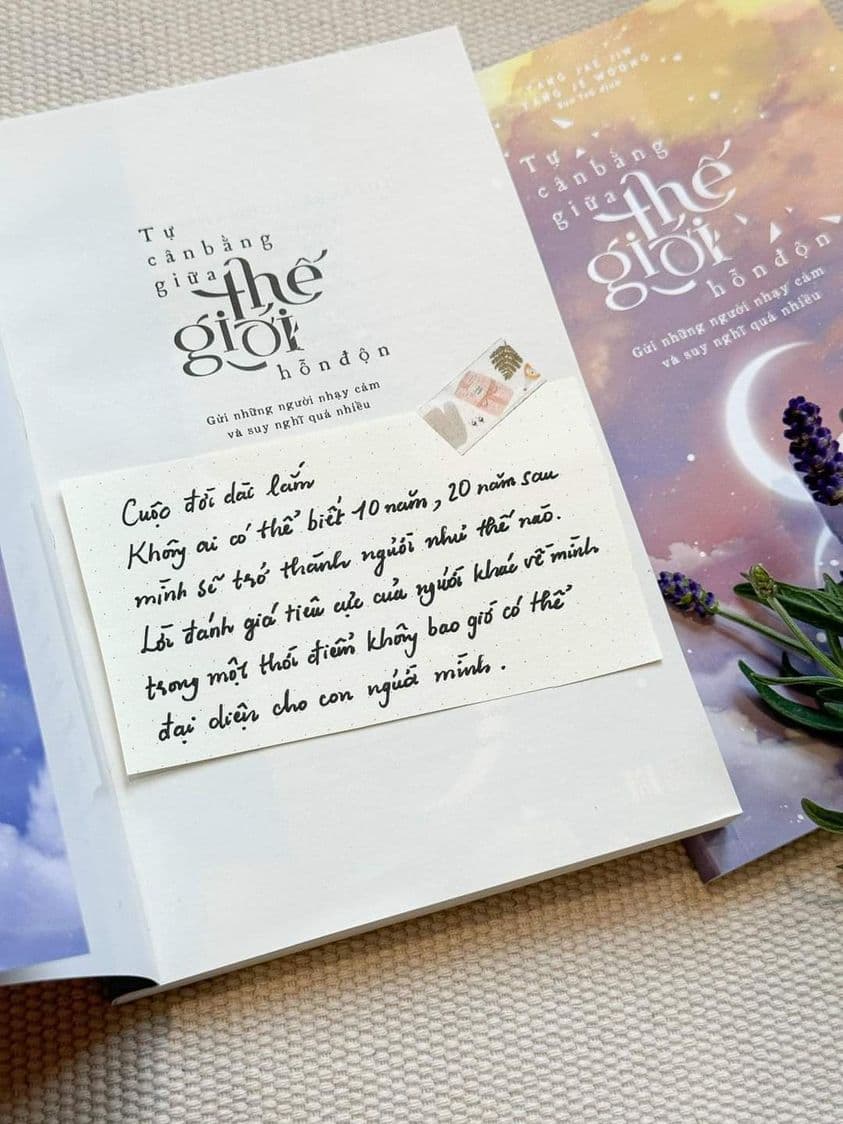 Tự
cân bằng
giữa thế
giới
hỗn độn
Gửi những người nhạy cảm
và suy nghĩ quá nhiều
Cuộc đời dài lắm
Không ai có thể biết 10 năm, 20 năm sau
mình sẽ trở thành người như thế nào.
Lời đánh giá tiêu cực của người khác về mình
trong một thời điểm không bao giờ có thể
đại diện cho con người mình.
YANG JAE JIN
YANG JE WOONG
dịch
Tự
cân bằng
giữa thế
giới
hỗn độn
Gửi những người nhạy cảm
và suy nghĩ quá nhiều